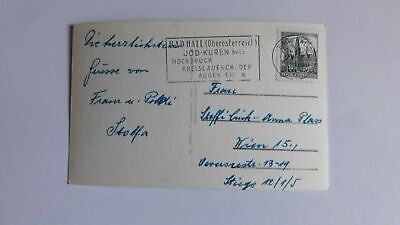 Die herzlichsten
Grüsse von
Franz u. Poldi
Stolfa
BAD HALL (Oberösterreich)
JOD-KUREN heilt
HOCHDRUCK
KREISLAUFSCHÄDEN
AUGENLEIDEN
Frau
Steffi Link-Anna Plass
Wien 15.,
13-19
Stiege 12/1/5